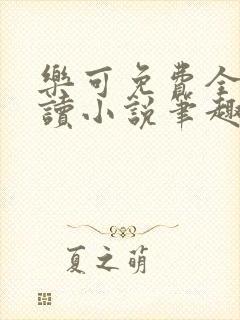 樂可免費全
讀小説筆趣
夏之萌